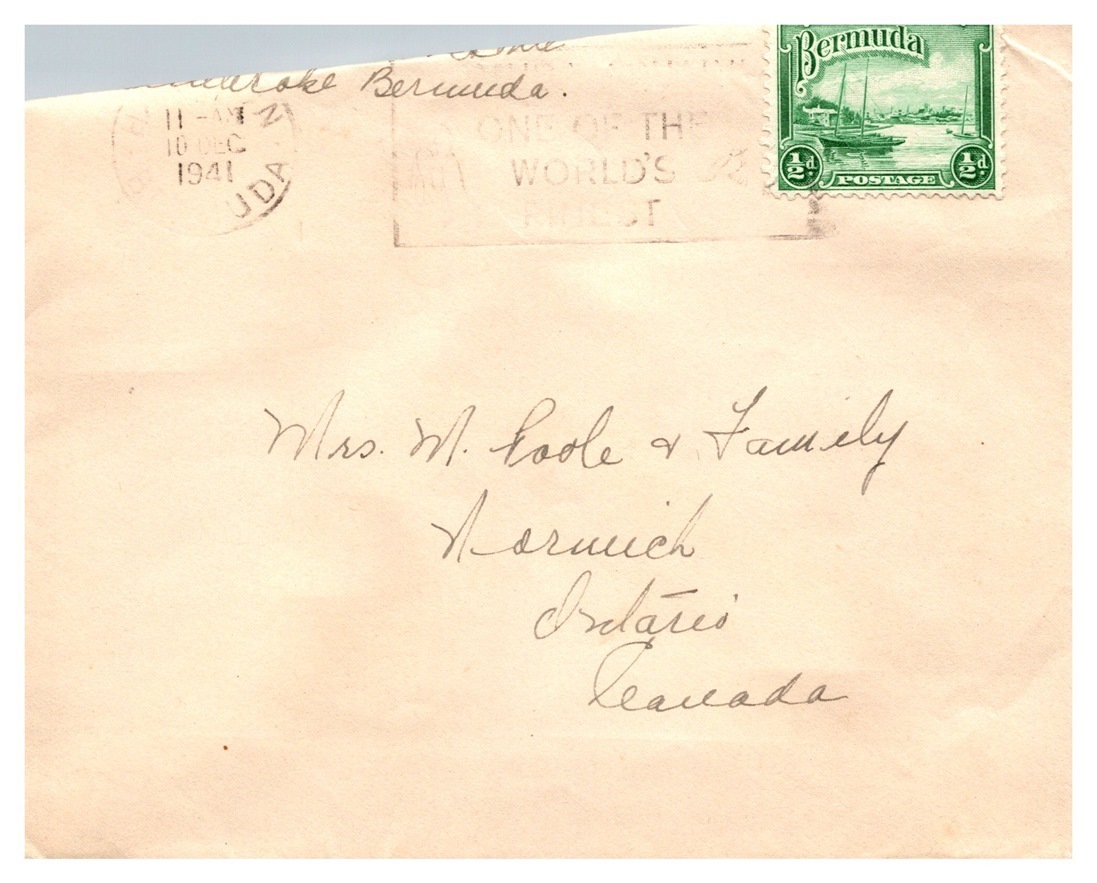 Bermuda.
11 - AM
10 DEC
1941
UDA
ONE OF THE
WORLD'S
FINEST
Bermuda
½d.
POSTAGE
½d.
Mrs. M. Poole & Family
Norwich
Ontario
Canada